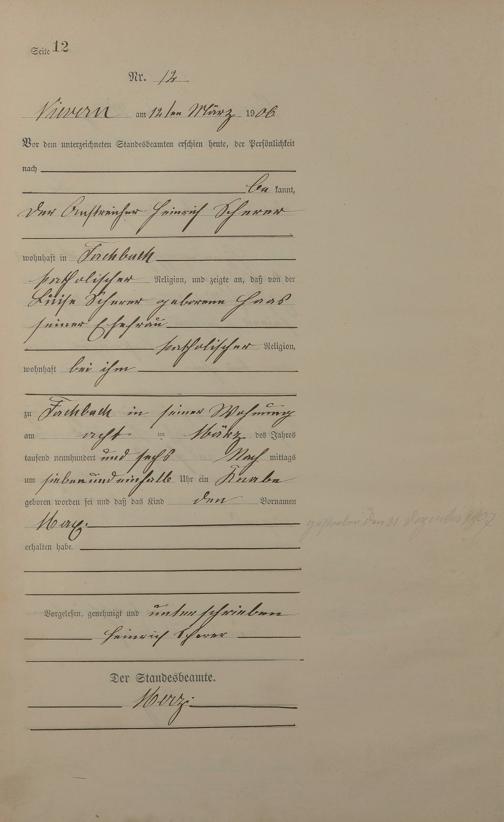 Seite 12
Nr. 12
Nievern am 12ten März 1906
Vor dem unterzeichneten Standesbeamten erschien heute, der Persönlichkeit
nach
be kannt,
der Anstreicher Heinrich Scherer
wohnhaft in Fachbach
katholischer Religion, und zeigte an, daß von der
Luise Scherer geborene Haas
seiner Ehefrau
katholischer Religion,
wohnhaft bei ihm
zu Fachbach in seiner Wohnung
am acht ten März des Jahres
tausend neunhundert und sechs Nach mittags
um siebenundeinhalb Uhr ein Knabe
geboren worden sei und daß das Kind den Vornamen
Max
erhalten habe.
gestorben den 31 Dezember
Vorgelesen, genehmigt und unterschrieben
Heinrich Scherer
Der Standesbeamte.
Merz